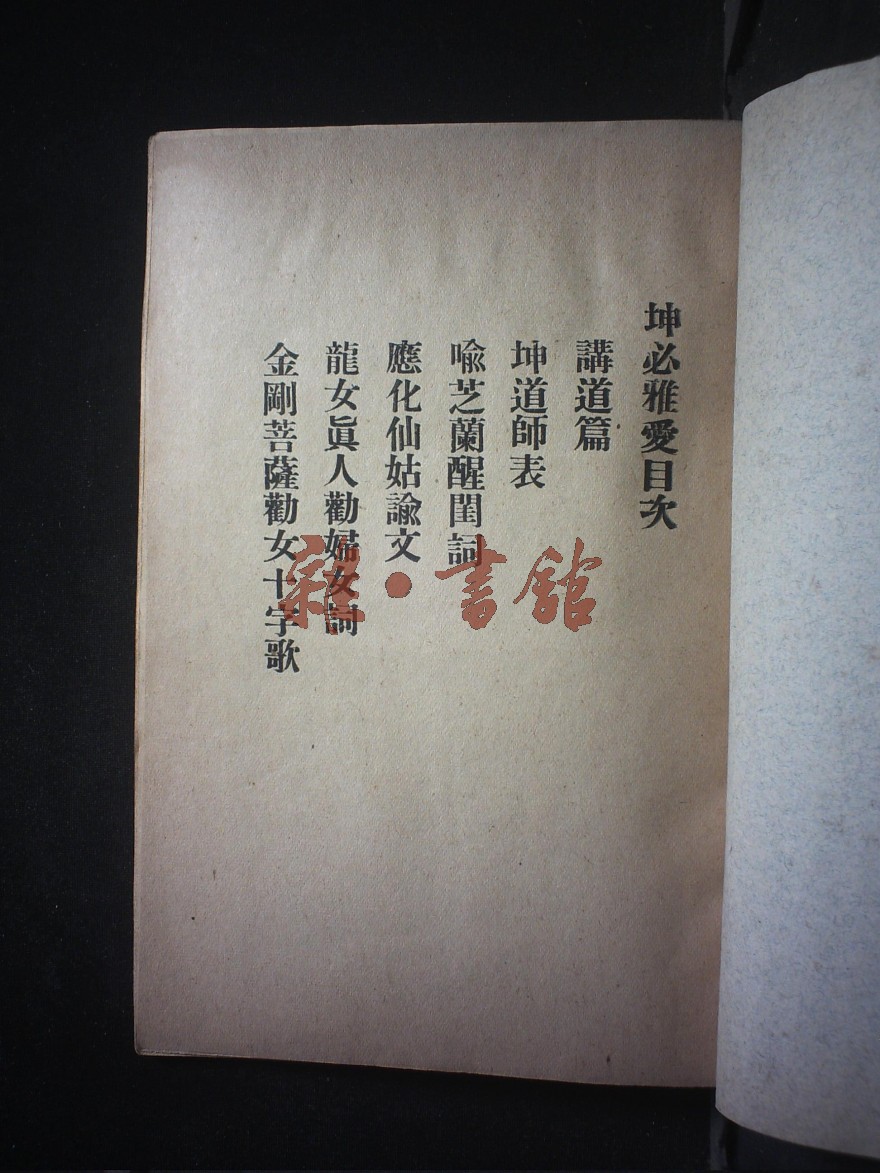 坤必雅愛目次
講道篇
坤道師表
喩芝蘭醒閨詞
應化仙姑諭文
龍女眞人勸婦女詞
金剛菩薩勸女十字歌
雜·書館